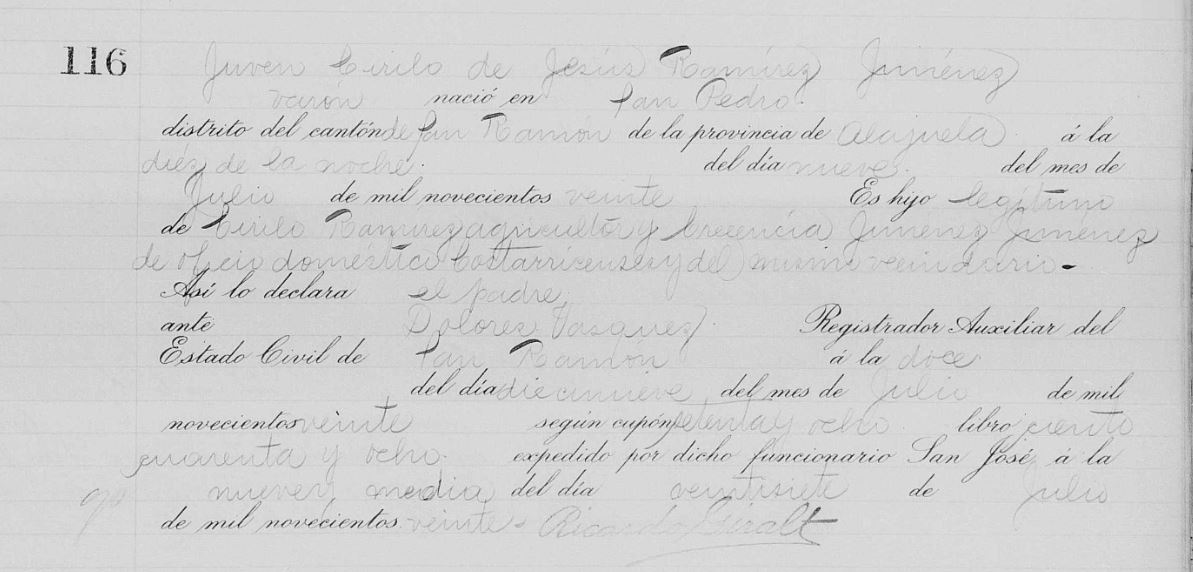 116 Juven Cirilo de Jesús Ramírez Jiménez
varón nació en San Pedro.
distrito del cantón de San Ramón de la provincia de Alajuela á la
diéz de la noche. del día nueve. del mes de
Julio de mil novecientos veinte Es hijo legítimo
de Cirilo Ramírez agricultor y Crecencia Jiménez Jiménez
de oficio doméstico Costarricenses y del mismo vecindario.-
Así lo declara el padre
ante Dolores Vasquez. Registrador Auxiliar del
Estado Civil de San Ramón á la doce
del día diecinueve del mes de Julio de mil
novecientos veinte según cupón setenta y ocho libro ciento
cuarenta y ocho. expedido por dicho funcionario San José á la
nueve y media del día veintisiete de Julio
de mil novecientos veinte- Ricardo Giralt